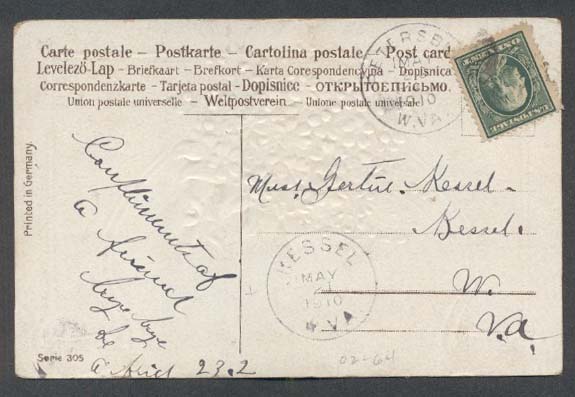 Carte postale – Postkarte – Cartolina postale – Post card
Levelező-Lap – Briefkaart – Brefkort – Karta Corespondencyina – Dopisnica
Correspondenzkarte – Tarjeta postal – Dopisnice – ОТКРЫТОЕ ПИСЬМО.
Union postale universelle – Weltpostverein – Unione postale universale
PETERSB
MAY
1910
W.VA.
U.S. POSTAGE
Printed in Germany.
Compliments of
a friend
bye bye
Miss. Gertie. Kessel.
Kessel.
W.
Va.
KESSEL
MAY
1910
W VA
Serie 305
23.2
02-64